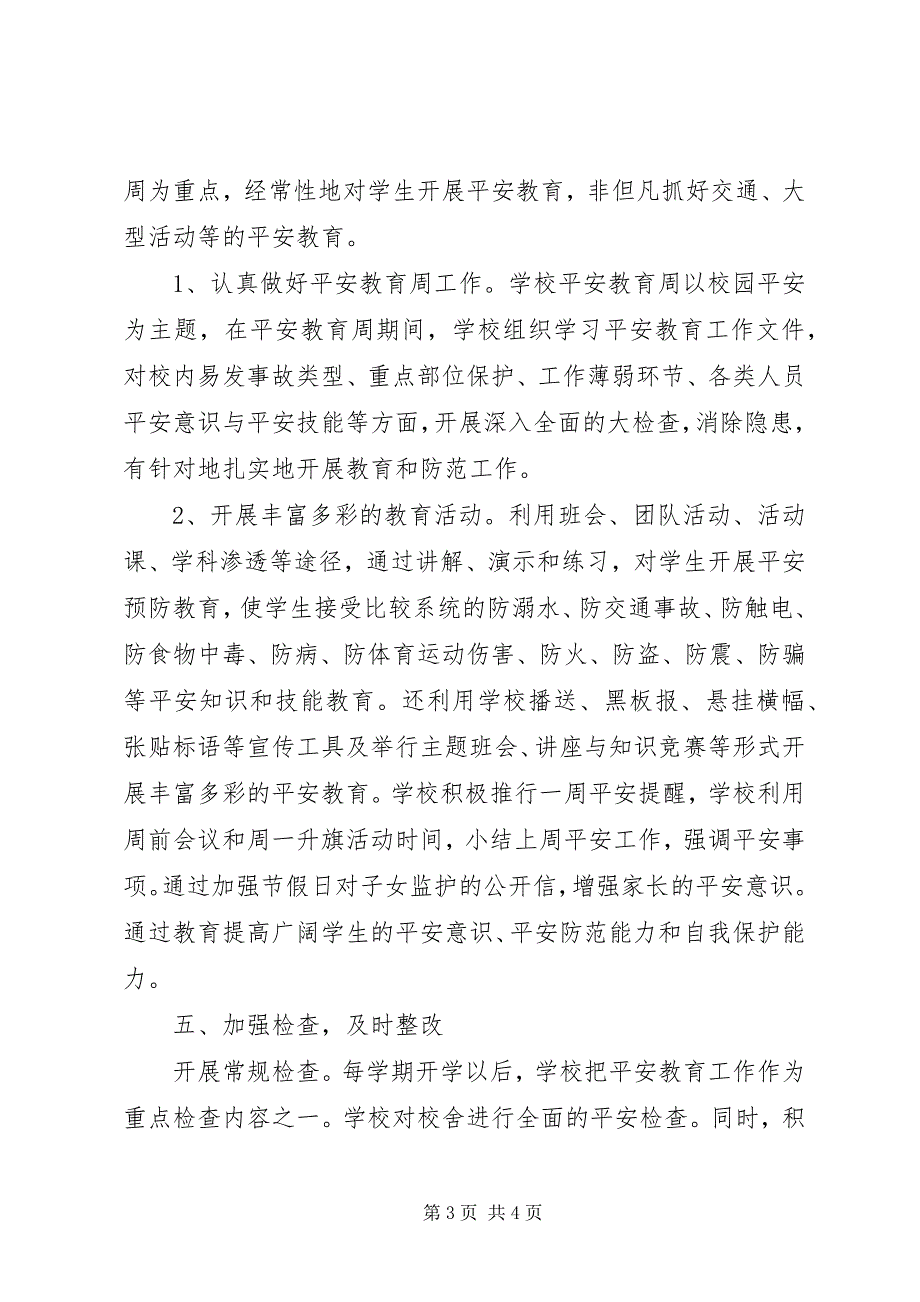 周为重点，经常性地对学生开展平安教育，非但凡抓好交通、大
型活动等的平安教育。
1、认真做好平安教育周工作。学校平安教育周以校园平安
为主题，在平安教育周期间，学校组织学习平安教育工作文件，
对校内易发事故类型、重点部位保护、工作薄弱环节、各类人员
平安意识与平安技能等方面，开展深入全面的大检查，消除隐患，
有针对地扎实地开展教育和防范工作。
2、开展丰富多彩的教育活动。利用班会、团队活动、活动
课、学科渗透等途径，通过讲解、演示和练习，对学生开展平安
预防教育，使学生接受比较系统的防溺水、防交通事故、防触电、
防食物中毒、防病、防体育运动伤害、防火、防盗、防震、防骗
等平安知识和技能教育。还利用学校播送、黑板报、悬挂横幅、
张贴标语等宣传工具及举行主题班会、讲座与知识竞赛等形式开
展丰富多彩的平安教育。学校积极推行一周平安提醒，学校利用
周前会议和周一升旗活动时间，小结上周平安工作，强调平安事
项。通过加强节假日对子女监护的公开信，增强家长的平安意识。
通过教育提高广阔学生的平安意识、平安防范能力和自我保护能
力。
五、加强检查，及时整改
开展常规检查。每学期开学以后，学校把平安教育工作作为
重点检查内容之一。学校对校舍进行全面的平安检查。同时，积
第 3 页 共 4 页